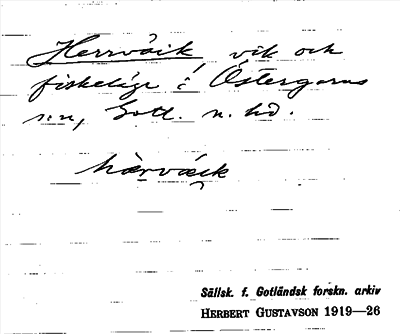 Herrvik vik och
fiskeläge i Östergarns
sn, Gotl. n. hd.
hàrvæik
Sällsk. f. Gotländsk forskn. arkiv
HERBERT GUSTAVSON 1919—26